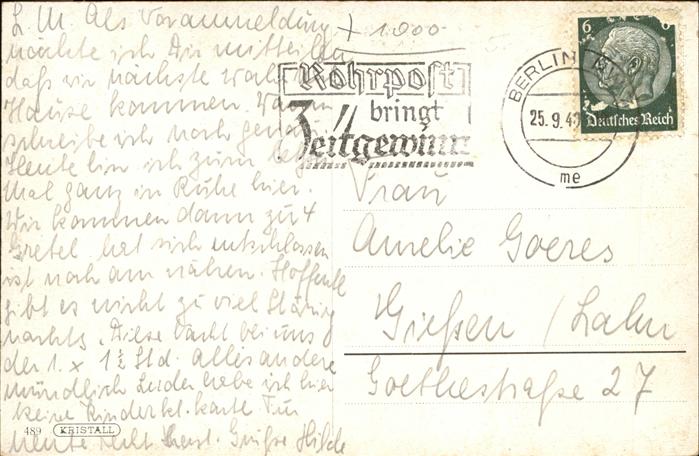 L. M. Als Voranmeldung
möchte ich Dir mitteilen
daß wir nächste Woche
Hause kommen. Wann
schreibe ich noch genau
Heute bin ich zum
Mal ganz in Ruhe hier.
Wir kommen dann zu 4
Gretel hat sich entschlossen
ist noch am nähen. Hoffentl.
gibt es nicht zu viel
nachts. Diese Nacht bei uns
der 1. x 1½ Std. Alles andere
mündlich Leider habe ich hier
keine Kinderkl. karte Für
heute Herzl. Grüße Hilde
+ 1000
Rohrpost
bringt
Zeitgewinn
BERLIN
25.9.4
me
6 6
Deutsches Reich
Frau
Amelie Goeres
Gießen / Lahn
Goethestraße 27
489 KRISTALL